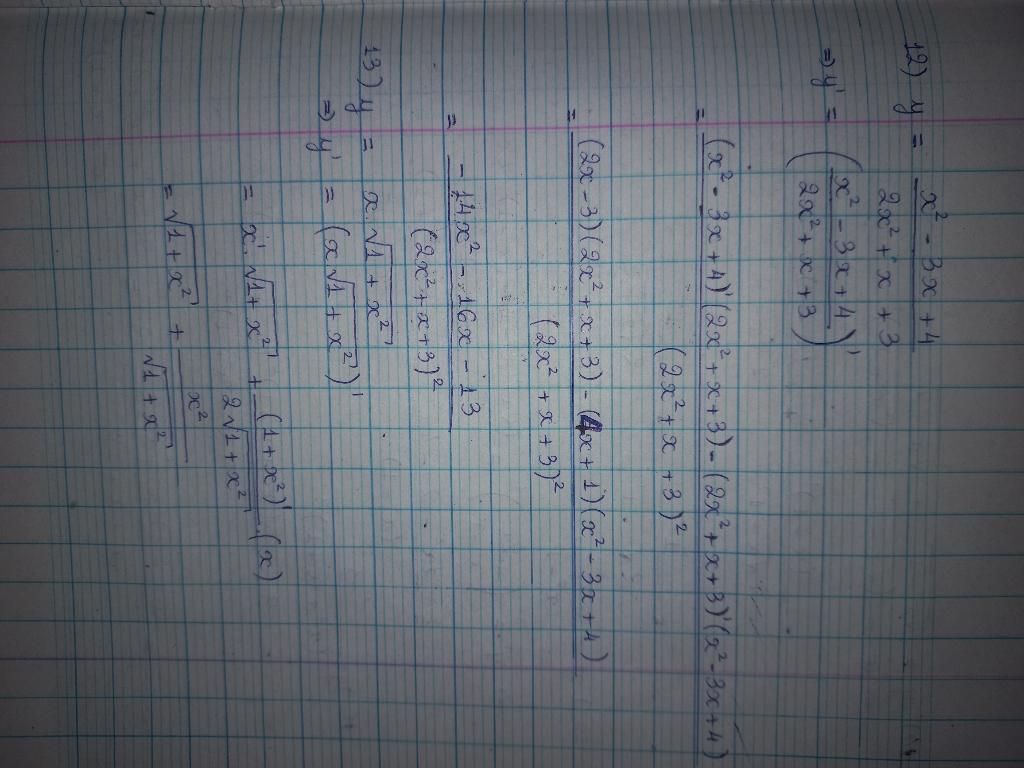 12) y = (x² - 3x + 4)/(2x² + x + 3)
=> y' = ((x² - 3x + 4)/(2x² + x + 3))'
= ((x² - 3x + 4)'(2x² + x + 3) - (2x² + x + 3)'(x² - 3x + 4))/(2x² + x + 3)²
= ((2x - 3)(2x² + x + 3) - (4x + 1)(x² - 3x + 4))/(2x² + x + 3)²
= (-14x² - 16x - 13)/(2x² + x + 3)²
13) y = x.√(1 + x²)
=> y' = (x√(1 + x²))'
= x'.√(1 + x²) + (1 + x²)'/(2√(1 + x²)).(x)
= √(1 + x²) + x²/√(1 + x²)